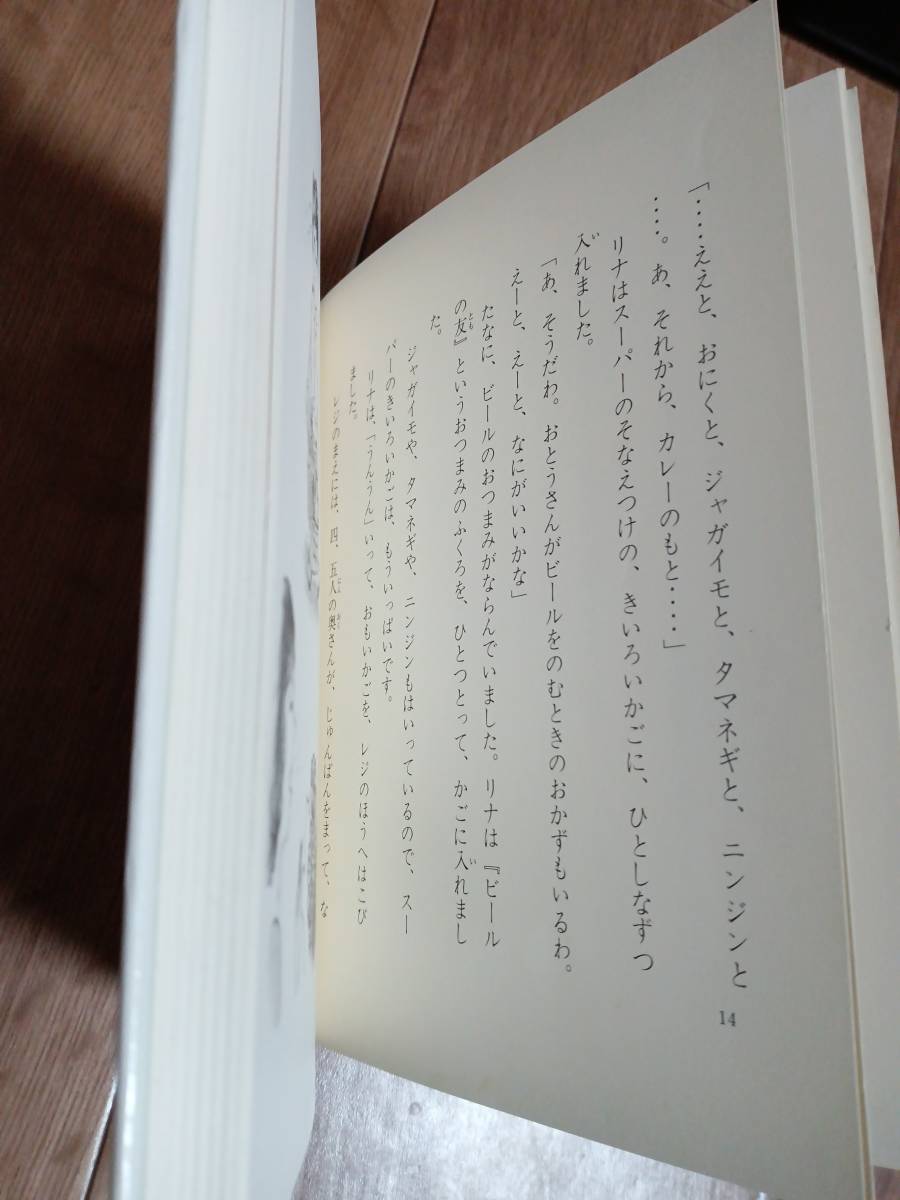 「‥‥ええと、おにくと、ジャガイモと、タマネギと、ニンジンと
‥‥。あ、それから、カレーのもと‥‥」
リナはスーパーのそなえつけの、きいろいかごに、ひとしなずつ
入れました。
「あ、そうだわ。おとうさんがビールをのむときのおかずもいるわ。
えーと、えーと、なにがいいかな」
たなに、ビールのおつまみがならんでいました。リナは『ビール
の友』というおつまみのふくろを、ひとつとって、かごに入れまし
た。
ジャガイモや、タマネギや、ニンジンもはいっているので、スー
パーのきいろいかごは、もういっぱいです。
リナは、「うんうん」いって、おもいかごを、レジのほうへはこび
ました。
レジのまえには、四、五人の奥さんが、じゅんばんをまって、な
14